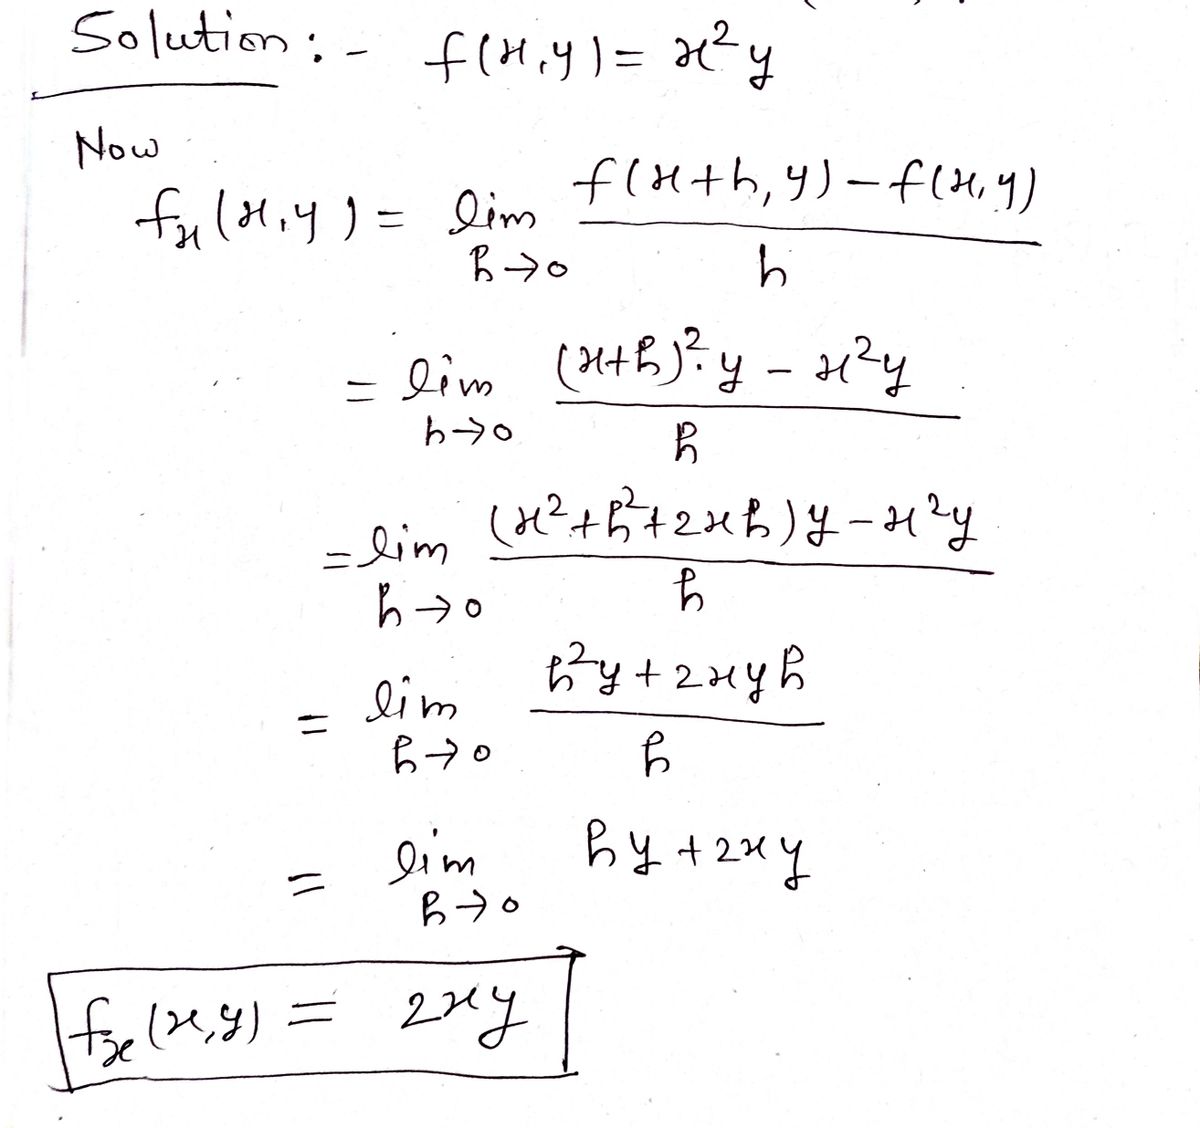 Solution :- f(x,y) = x²y
Now
fₓ(x,y) = lim h→0 f(x+h, y) – f(x,y) / h
= lim h→0 (x+h)².y – x²y / h
= lim h→0 (x²+h²+2xh)y – x²y / h
= lim h→0 h²y + 2xyh / h
= lim h→0 hy + 2xy
fₓ(x,y) = 2xy